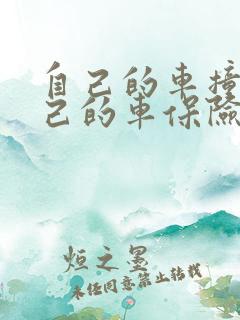 自己的车撞
己的车保险
烜之墨
未经同意禁止转载